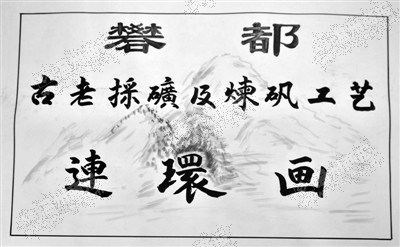 礬都
古老採礦及煉矾工艺
連環画